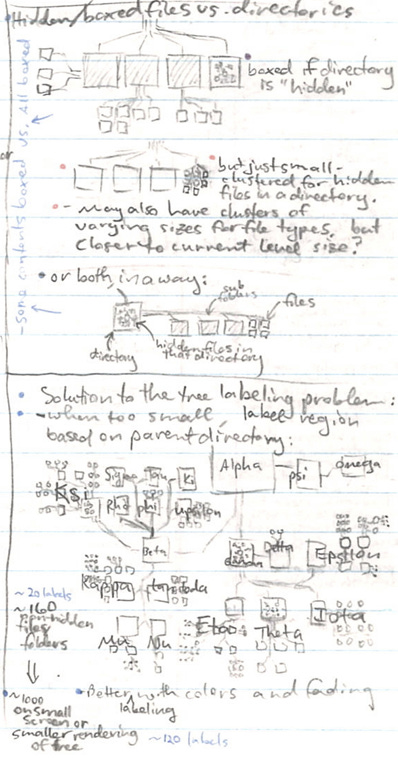 Hidden/boxed files vs. directories
boxed if directory
is "hidden"
- Some contents boxed vs. All boxed
or
but just small-
clustered for hidden
files in a directory.
- May also have clusters of
varying sizes for file types, but
closer to current level size?
or both in a way:
sub
folders
files
directory
hidden files in
that directory
Solution to the tree labeling problem:
- when too small, label region
based on parent directory:
Alpha
psi
Omega
Tau
Ki
Rho
phi
upsilon
Beta
Delta
Epsilon
Kappa
Mu
Nu
Eta
Theta
Iota
~20 labels
~160
non-hidden
files
folders
~1000
on small
screen or
smaller rendering
of tree
Better with colors and fading
labeling
~120 labels